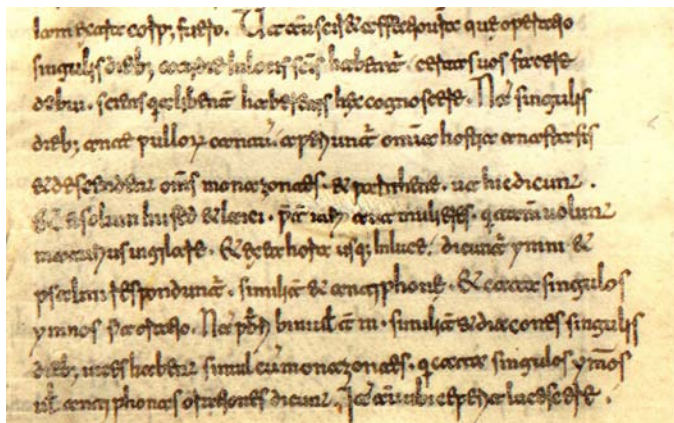 iam extra corp; fuero. Ut autē sciret affectio ura que operatio
singulis dieb; cotidie in locis scīs habeatur. certas uos facere
debui. sciens qa libent haberetis hec cognoscere. Nā singulis
dieb; ante pulloꝝ cantū. aperiunt omia hostia anastasis
& descendent oms monazontes. & parthene. ut hic dicunt.
& n solum hii sed & laici. pt uiri aut mulieres. q tamen uolunt
maturius uigilare. & ex ea hora usq; in luce. dicunt ymni &
psalmi respondunt. similit & antiphone. & cata singulos
ymnos fit oratio. Nā pbri bini ut ni. similit & diacones singulis
dieb; uices habent simul cū monazontes. q cata singulos ymos
ul antiphonas orationes dicunt. Iā autē ubi ceperit lucescere.